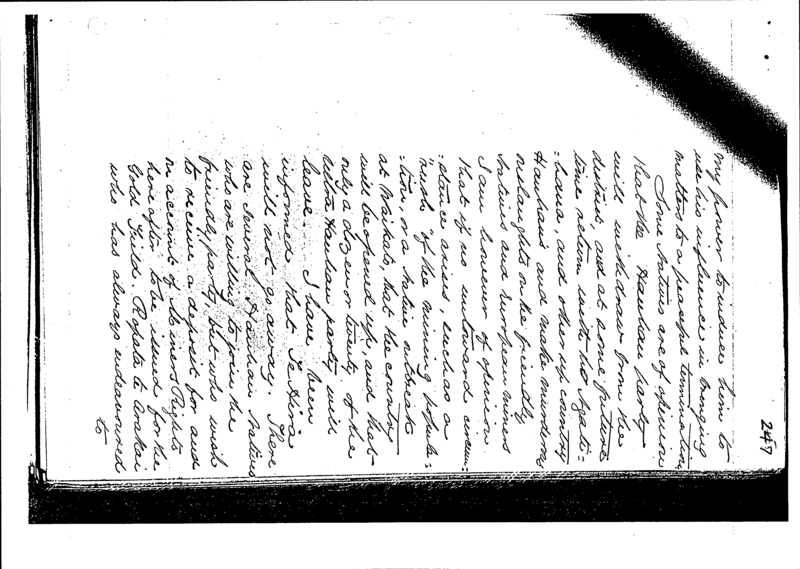 247
my power to induce him to
use his influence in bringing
matters to a peaceful termination
Some Natives are of opinion
that the Hauhau party
will withdraw from the
district, and at some future
time return with the Ngati=
=haua, and other up country
Hauhaus and make murderous
onslaughts on the friendly
Natives and European miners
I am however of opinion
that if no untoward circum=
=stance arises, such as a
"rush" of the mining popula=
=tion, or a Native outbreak
at Waikato, that the country
will be opened up, and that
only a dozen or twenty of the
ultra Hauhau party will
leave. I have been
informed that Te Hira
will not go away. There
are several Hauhau Natives
who are willing to join the
friendly party, but who wish
to receive a deposit for and
on account of Miners Rights
hereafter to be issued for the
Gold Field. Ropata te Arakai
who has always endeavoured
to